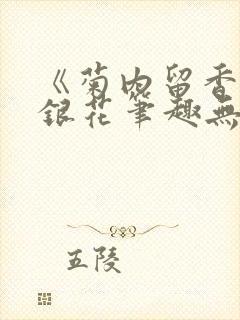 《菊内留香
銀花筆趣無
五陵